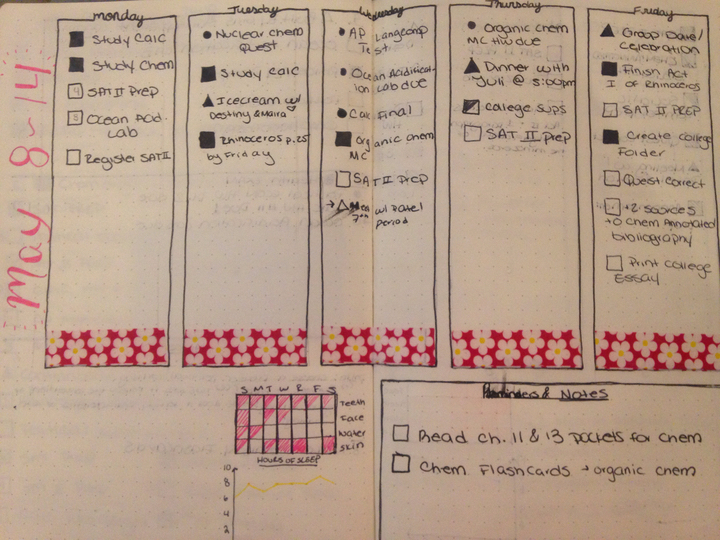 May 8-14
Monday
Study Calc
Study Chem
SAT II Prep
Ocean Acid.
Lab
Register SAT II
Tuesday
Nuclear chem
Quest
Study Calc
Icecream w/
Destiny & Maira
Rhinoceros p.25
by Friday
Wednesday
AP Lang comp
Test
Ocean Acidificat-
ion Lab due
Calc Final
Organic chem
MC
SAT II Prep
period
Thursday
Organic chem
MC HW due
Dinner with
Yuli @ 5:00pm
College Sups
SAT II Prep
Friday
Group Date/
Celebration
Finish Act
I of Rhinoceros
SAT II PREP
Create college
Folder
Quest correct
+2 sources
to chem Annotated
bibliography
Print College
Essay
S M T W R F S
Teeth
Face
Water
Skin
HOURS OF SLEEP
10
8
6
4
2
Reminders & Notes
Read ch. 11 & 13 pockets for chem
Chem Flashcards → organic chem